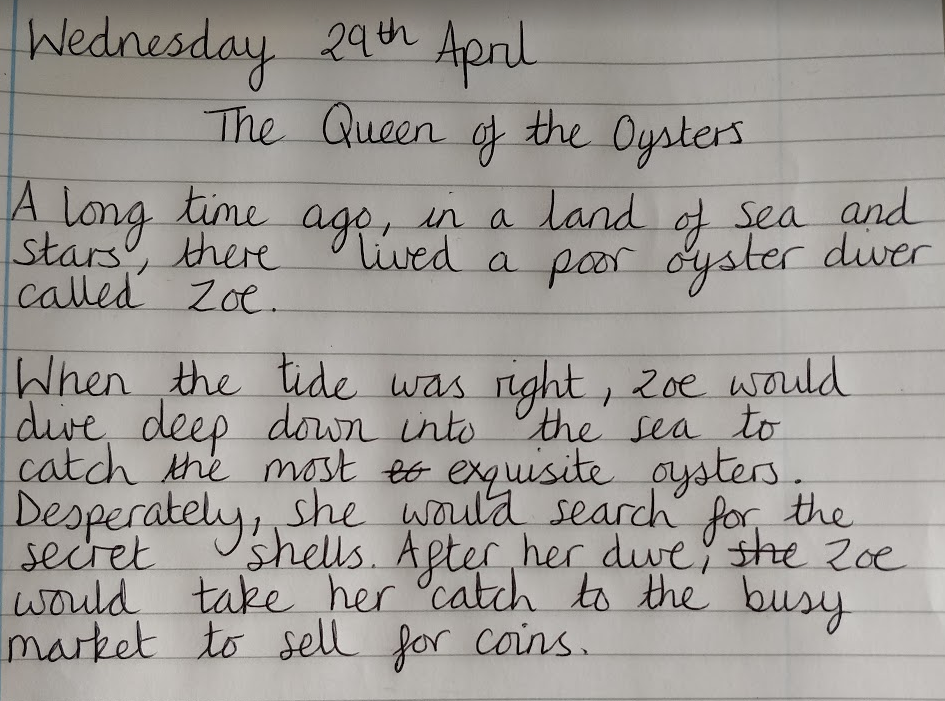 Wednesday 29th April
The Queen of the Oysters
A long time ago, in a land of sea and
stars, there lived a poor oyster diver
called Zoe.
When the tide was right, Zoe would
dive deep down into the sea to
catch the most exquisite oysters.
Desperately, she would search for the
secret shells. After her dive, she Zoe
would take her catch to the busy
market to sell for coins.